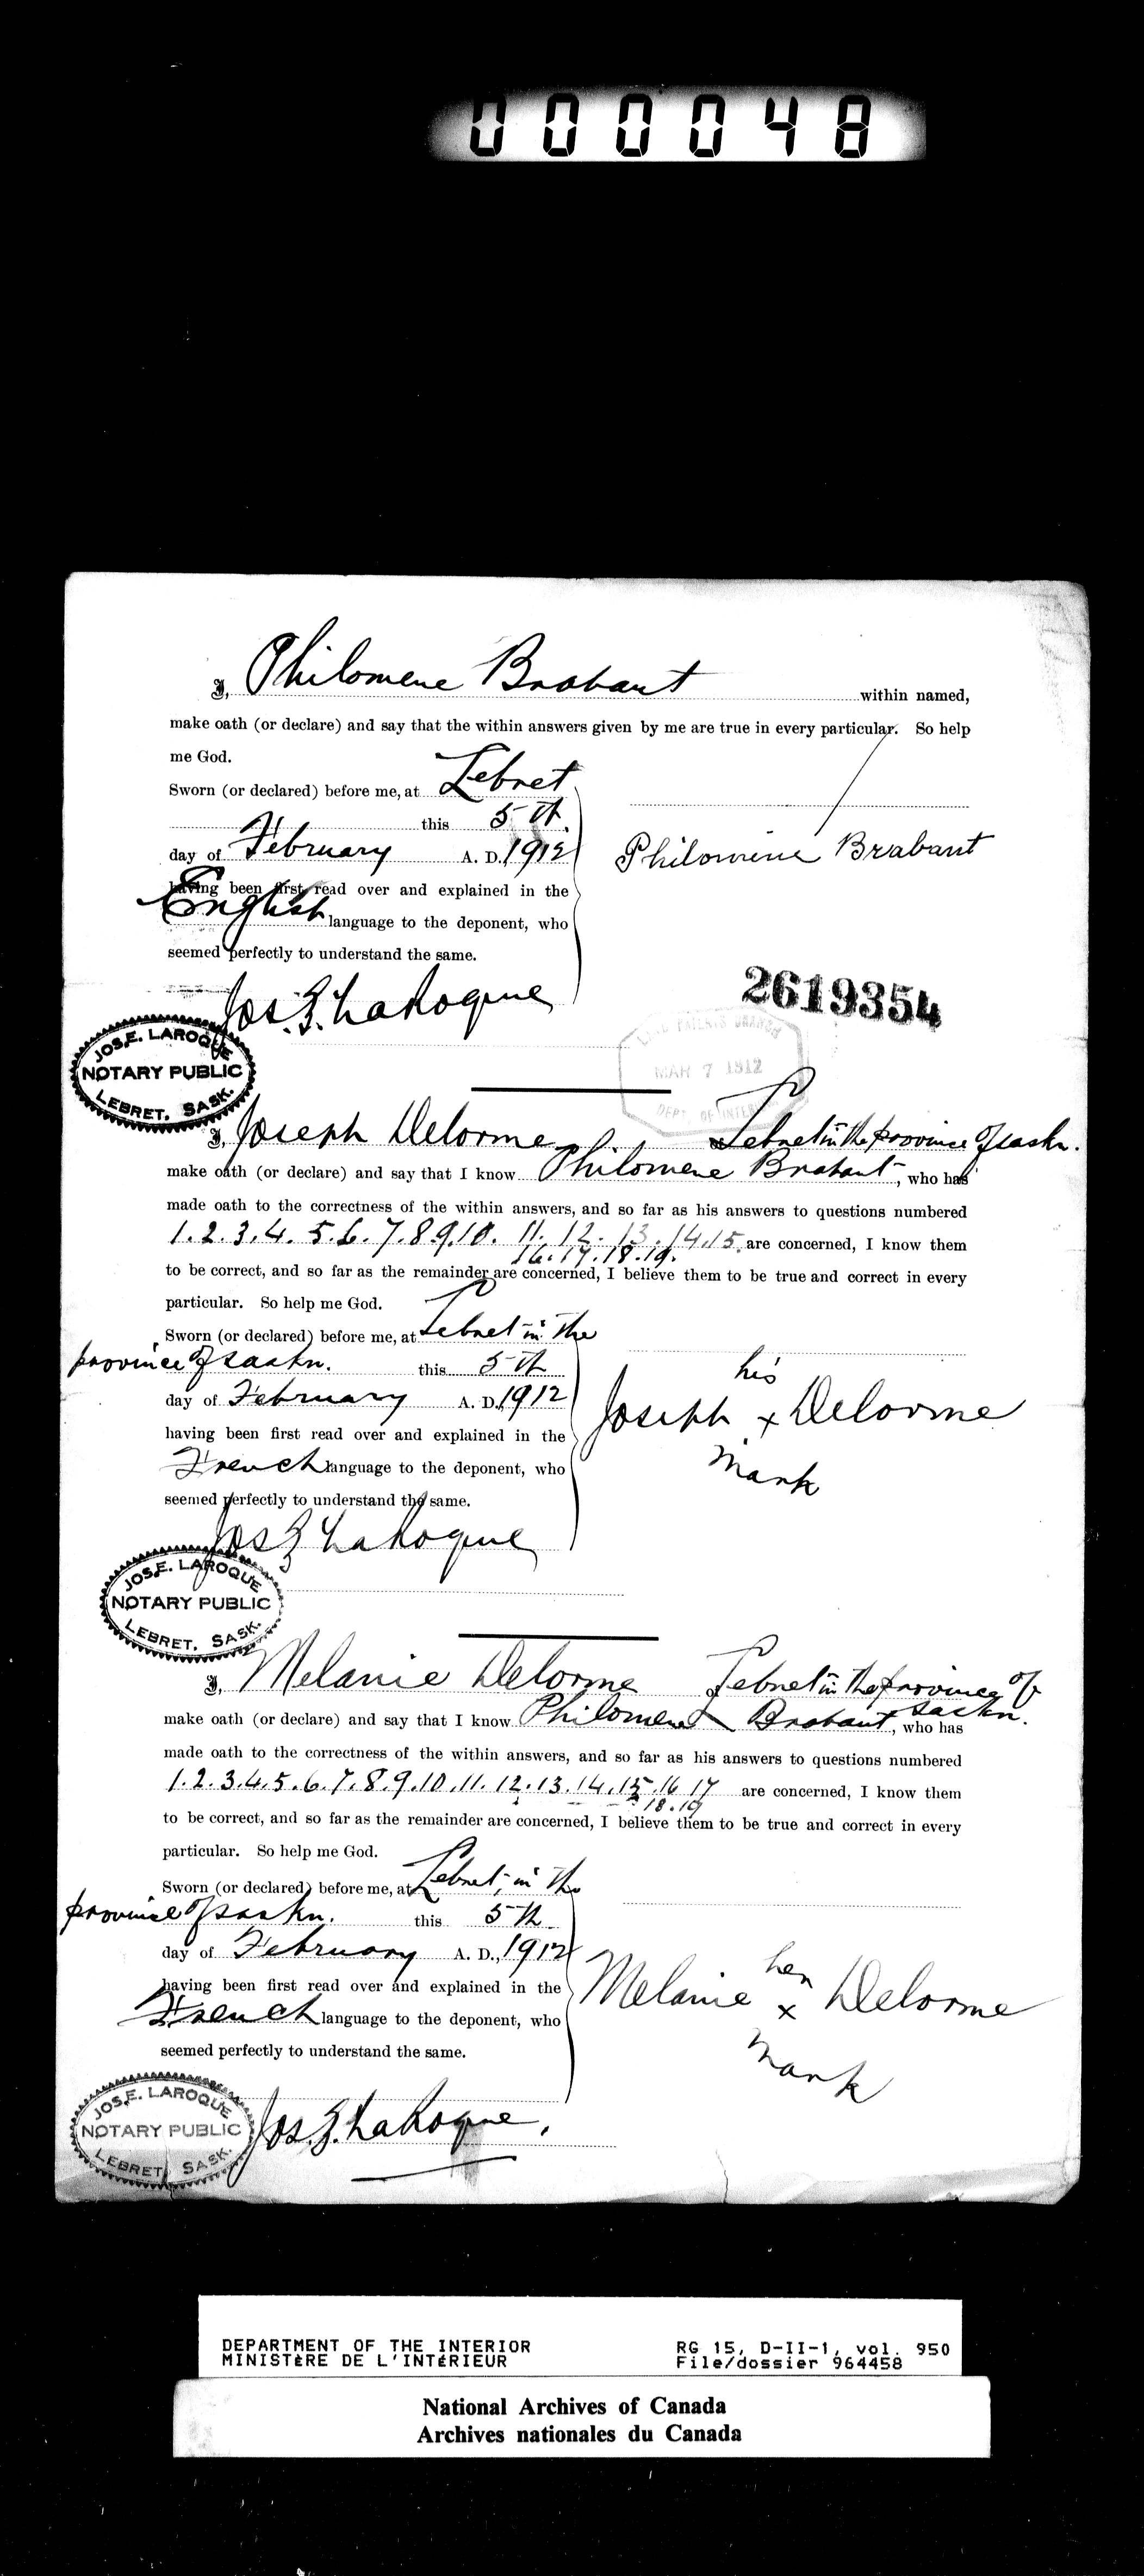 000048
I, Philomene Brabant within named,
make oath (or declare) and say that the within answers given by me are true in every particular. So help
me God.
Sworn (or declared) before me, at Lebret
this 5th
day of February A. D. 1912
Philomene Brabant
having been first read over and explained in the
English language to the deponent, who
seemed perfectly to understand the same.
Jos. E. LaRoque
2619354
LAND PATENTS BRANCH
MAR 7 1912
DEPT. OF INTERIOR
JOS. E. LAROQUE
NOTARY PUBLIC
LEBRET, SASK.
I, Joseph Delorme Lebret in the province of Saskn.
make oath (or declare) and say that I know Philomene Brabant, who has
made oath to the correctness of the within answers, and so far as his answers to questions numbered
1. 2. 3. 4. 5. 6. 7. 8. 9. 10. 11. 12. 13. 14. 15. are concerned, I know them
16. 17. 18. 19.
to be correct, and so far as the remainder are concerned, I believe them to be true and correct in every
particular. So help me God.
Sworn (or declared) before me, at Lebret in the
province of Saskn. this 5th
day of February A. D. 1912
his
Joseph x Delorme
mark
having been first read over and explained in the
French language to the deponent, who
seemed perfectly to understand the same.
Jos E LaRoque
JOS. E. LAROQUE
NOTARY PUBLIC
LEBRET, SASK.
I, Melanie Delorme Lebret in the province of
Saskn.
make oath (or declare) and say that I know Philomene Brabant, who has
made oath to the correctness of the within answers, and so far as his answers to questions numbered
1. 2. 3. 4. 5. 6. 7. 8. 9. 10. 11. 12. 13. 14. 15. 16 17 are concerned, I know them
18. 19
to be correct, and so far as the remainder are concerned, I believe them to be true and correct in every
particular. So help me God.
Sworn (or declared) before me, at Lebret, in the
province of Saskn. this 5th
day of February A. D., 1912
her
Melanie x Delorme
mark
having been first read over and explained in the
French language to the deponent, who
seemed perfectly to understand the same.
JOS. E. LAROQUE
NOTARY PUBLIC
LEBRET, SASK.
Jos. E. LaRoque.
DEPARTMENT OF THE INTERIOR
MINISTÈRE DE L'INTÉRIEUR
RG 15, D-II-1, vol. 950
File/dossier 964458
National Archives of Canada
Archives nationales du Canada